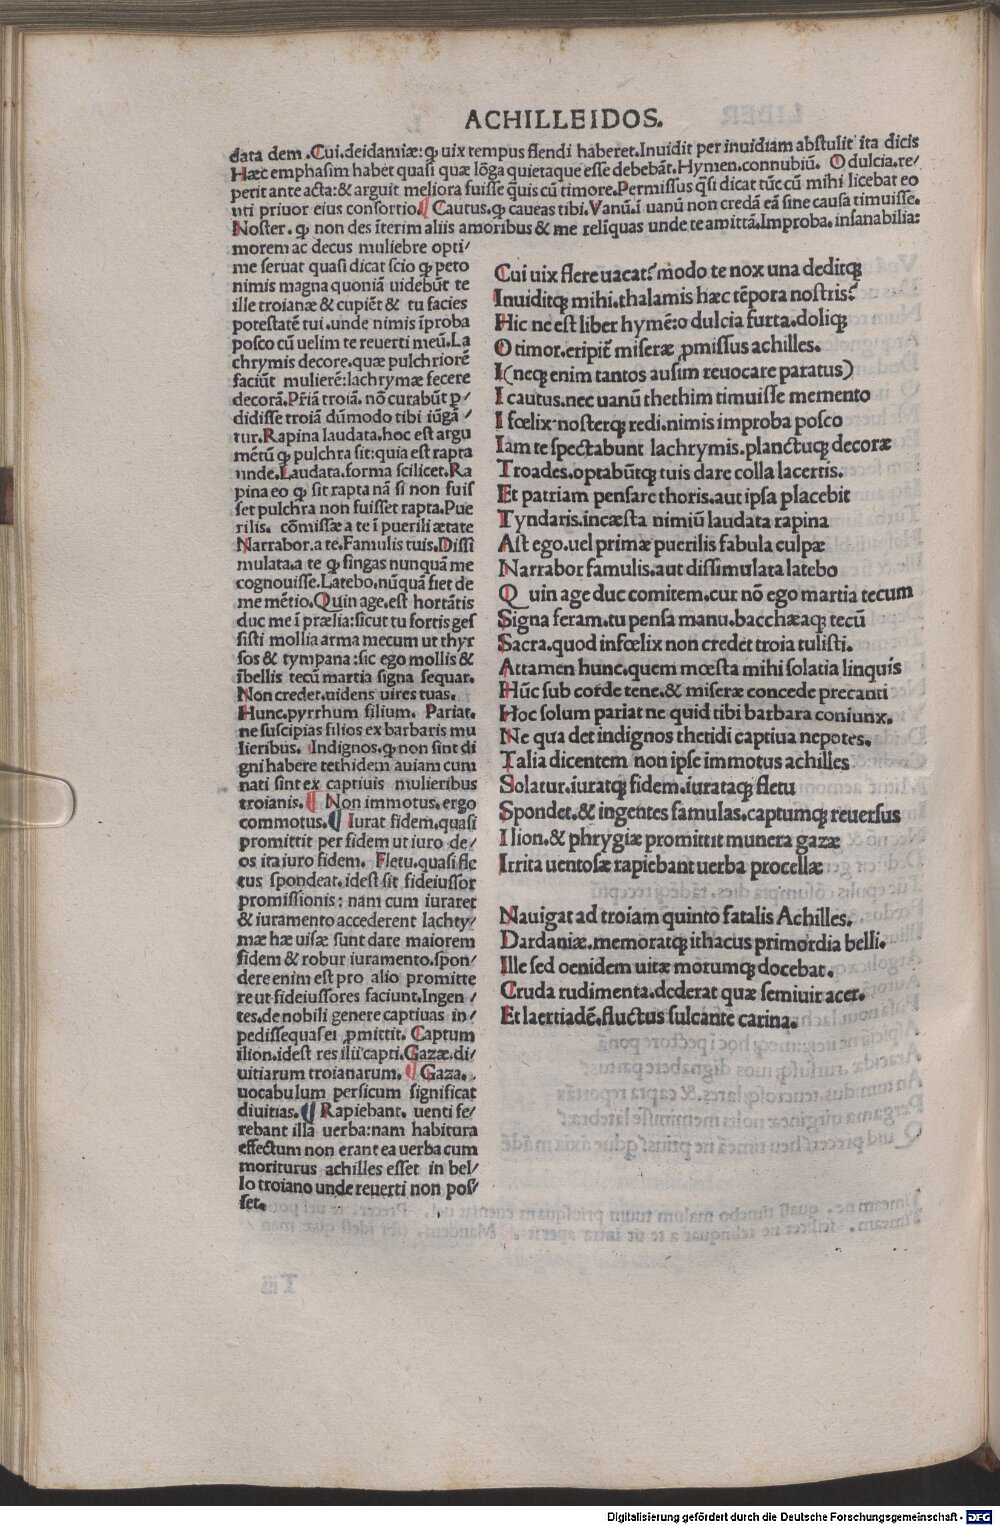 ACHILLEIDOS.
data dem. Cui. deidamiæ: ꝙ uix tempus flendi haberet. Inuidit per inuidiam abstulit ita dicis
Hæc emphasim habet quasi quæ lōga quietaque esse debebāt. Hymen. connubiū. O dulcia. re⸗
petit ante acta: & arguit meliora fuisse q̄uis cū timore. Permissus q̄si dicat tūc cū mihi licebat eo
uti priuor eius consortio. ¶ Cautus. ꝙ caueas tibi. Vanū. ī uanū non credā eā sine causa timuisse.
Noster. ꝙ non des īterim aliis amoribus & me relīquas unde te amittā. Improba. insanabilia:
morem ac decus muliebre opti/
me seruat quasi dicat scio ꝙ peto
nimis magna quoniā uidebūt te
ille troianæ & cupiēt & tu facies
potestatē tui. unde nimis īproba
posco cū uelim te reuerti meū. La
chrymis decore. quæ pulchriorē
faciūt mulierē: lachrymæ fecere
decorā. Pr̄iā troiā. nō curabūt ꝑ/
didisse troiā dūmodo tibi iūgā/
tur. Rapina laudata. hoc est argu
mētū ꝙ pulchra sit: quia est rapta
unde. Laudata. forma scilicet. Ra
pina eo ꝙ sit rapta nā si non fuis
set pulchra non fuisset rapta. Pue
rilis. cōmissæ a te ī puerili ætate
Narrabor. a te. Famulis tuis. Dissi
mulata. a te ꝙ singas nunquā me
cognouisse. Latebo. nūquā fiet de
me mētio. Quin age. est hortātis
duc me ī prælia: sicut tu fortis ges
sisti mollia arma mecum ut thyr
sos & tympana: sic ego mollis &
ībellis tecū martia signa sequar.
Non credet. uidens uires tuas.
Hunc. pyrrhum filium. Pariat.
ne suscipias filios ex barbaris mu
lieribus. Indignos. ꝙ non sint di
gni habere tethidem auiam cum
nati sint ex captiuis mulieribus
troianis. ¶ Non immotus. ergo
commotus. ¶ Iurat fidem. quasi
promittit per fidem ut iuro de/
os ita iuro fidem. Fletu. quasi fle
tus spondeat. idest sit fideiussor
promissionis: nam cum iuraret
& iuramento accederent lachry/
mæ hæ uisæ sunt dare maiorem
fidem & robur iuramento. spon/
dere enim est pro alio promitte
re ut fideiussores faciunt. Ingen/
tes. de nobili genere captiuas in/
pedissequas ei ꝓmittit. Captum
ilion. idest res ilii capti. Gazæ. di/
uitiarum troianarum. ¶ Gaza.
uocabulum persicum significat
diuitias. ¶ Rapiebant. uenti fe/
rebant illa uerba: nam habitura
effectum non erant ea uerba cum
moriturus achilles esset in bel/
lo troiano unde reuerti non pos/
set.
Cui uix flere uacat? modo te nox una deditꝗ
Inuiditꝗ mihi. thalamis hæc tēpora nostris?
Hic ne est liber hymē: o dulcia furta. doliꝗ
O timor. eripit̄ miseræ ꝓmissus achilles.
I (neꝗ enim tantos ausim reuocare paratus)
I cautus. nec uanū thethim timuisse memento
I fœlix. nosterꝗ redi. nimis improba posco
Iam te spectabunt lachrymis. planctuꝗ decoræ
Troades. optabūtꝗ tuis dare colla lacertis.
Et patriam pensare thoris. aut ipsa placebit
Tyndaris. incæsta nimiū laudata rapina
Ast ego. uel primæ puerilis fabula culpæ
Narrabor famulis. aut dissimulata latebo
Quin age duc comitem. cur nō ego martia tecum
Signa feram. tu pensa manu. bacchæaꝗ tecū
Sacra. quod infœlix non credet troia tulisti.
Attamen hunc. quem mœsta mihi solatia linquis
Hūc sub corde tene. & miseræ concede precanti
Hoc solum pariat ne quid tibi barbara coniunx.
Ne qua det indignos thetidi captiua nepotes.
Talia dicentem non ipse immotus achilles
Solatur. iuratꝗ fidem. iurataꝗ fletu
Spondet. & ingentes famulas. captumꝗ reuersus
Ilion. & phrygiæ promittit munera gazæ
Irrita uentosæ rapiebant uerba procellæ
Nauigat ad troiam quinto fatalis Achilles.
Dardaniæ. memoratꝗ ithacus primordia belli.
Ille sed oenidem uitæ morumꝗ docebat.
Cruda rudimenta. dederat quæ semiuir acer.
Et laertiadē. fluctus sulcante carina.
Digitalisierung gefördert durch die Deutsche Forschungsgemeinschaft - DFG